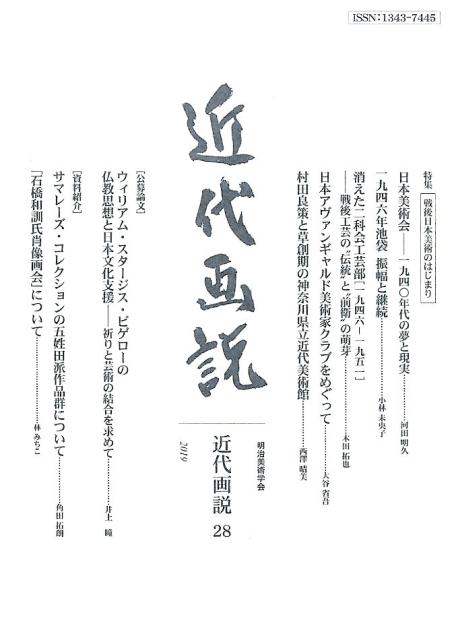 ISSN：1343-7445
特集 戦後日本美術のはじまり
日本美術会──一九四〇年代の夢と現実…………河田 明久
一九四六年池袋 振幅と継続…………小林 未央子
消えた二科会工芸部［一九四六－一九五一］
──戦後工芸の“伝統”と“前衛”の萌芽…………木田 拓也
日本アヴァンギャルド美術家クラブをめぐって…………大谷 省吾
村田良策と草創期の神奈川県立近代美術館…………西澤 晴美
明治美術学会
近代画説 28
2019
近代画説
［公募論文］
ウィリアム・スタージス・ビゲローの
仏教思想と日本文化支援──祈りと芸術の結合を求めて…………井上 瞳
［資料紹介］
サマレーズ・コレクションの五姓田派作品群について…………角田 拓朗
「石橋和訓氏肖像画会」について…………林 みちこ